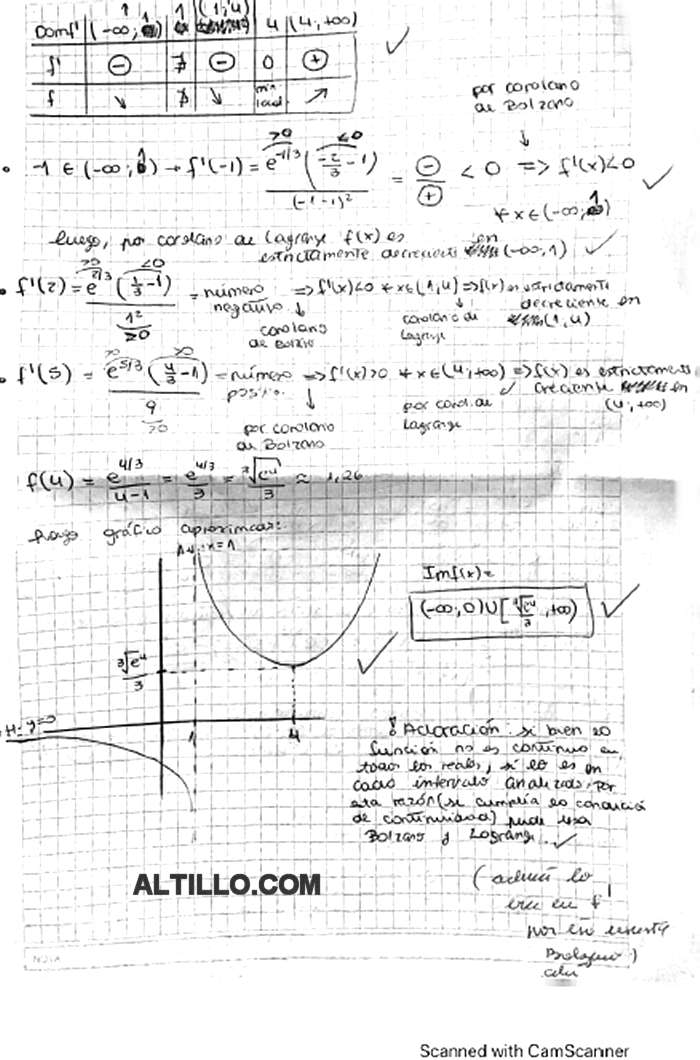 ↑ 1 1 (1; 4)
Domf' (-∞; ) 4 (4; +∞)
f' ⊖ ∄ ⊖ 0 ⊕
f ↘ ∄ ↘ mín local ↗
✓
por corolario
de Bolzano
↓
• -1 ∈ (-∞; 1) → f'(-1) = e^(-1/3) (-2/3 - 1) / (-1-1)² = ⊖/⊕ < 0 ⇒ f'(x)<0 ✓
>0 <0
∀ x ∈ (-∞; 1)
luego, por corolario de Lagrange f(x) es
estrictamente decreciente en (-∞, 1) ✓
>0 <0
• f'(2) = e^(2/3) (1/3 - 1) / 1² = número negativo ⇒ f'(x)<0 ∀ x ∈ (1, 4) ⇒ f(x) es estrictamente
decreciente en
(1, 4)
>0
↓ corolario de Bolzano
↓ corolario de Lagrange
>0 >0
• f'(5) = e^(5/3) (4/3 - 1) / 9 = número ⇒ f'(x)>0 ∀ x ∈ (4; +∞) ⇒ f(x) es estrictamente
creciente en
(4; +∞)
>0
↓
por corolario
de Bolzano
✓
por corol. de
Lagrange
f(4) = e^(4/3) / 4-1 = e^(4/3) / 3 = ³√e⁴ / 3 ≈ 1,26
hago gráfico aproximado:
A.V: x=1
Imf(x)=
(-∞; 0) ∪ [³√e⁴/3 , +∞) ✓
³√e⁴ / 3
✓
A.H: y=0
1 4
! Aclaración: si bien la
función no es continua en
todos los reales, si lo es en
cada intervalo analizado, por
esta razón (se cumplía la condición
de continuidad) pude usar
Bolzano y Lagrange. ✓
ALTILLO.COM
lo
en f'
NOTA
Scanned with CamScanner